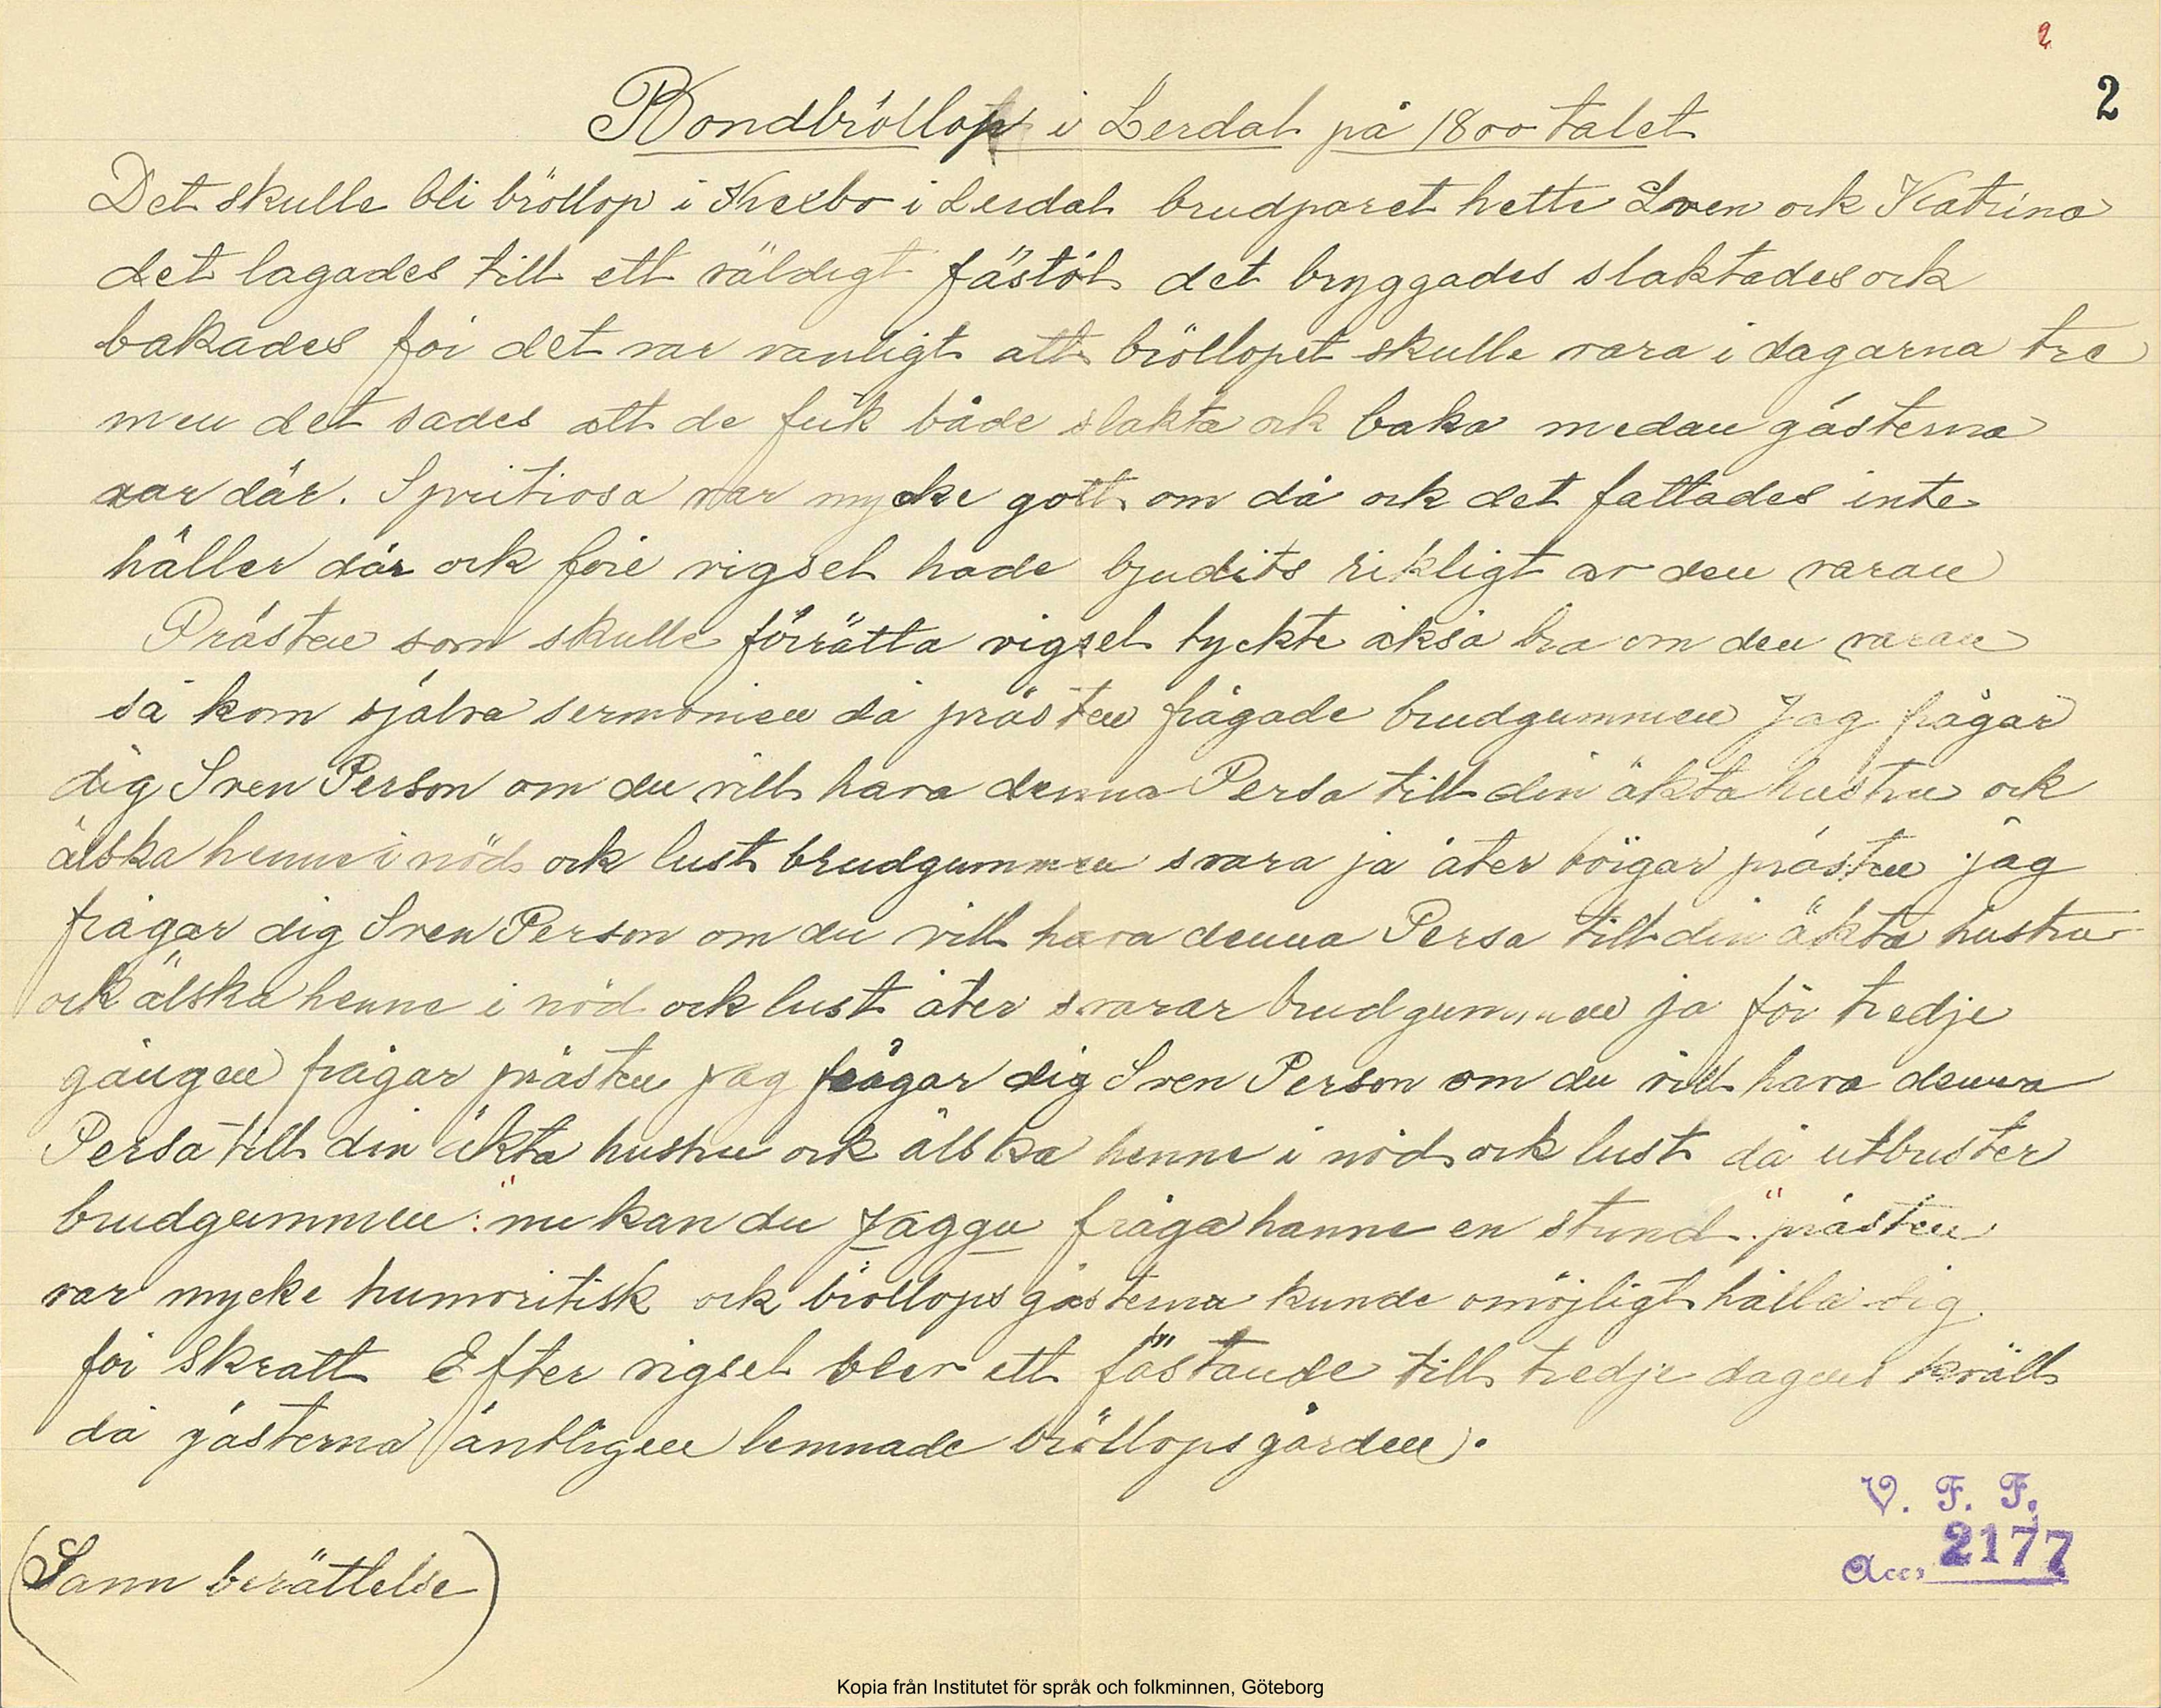 2
2
Bondbröllop i Lerdal på 1800 talet
Det skulle bli bröllop i Kvexbo i Lerdal brudparet hette Sven ock Katrina
det lagades till ett väldigt fästöl det bryggades slaktades ock
bakades för det var vanligt att bröllopet skulle vara i dagarna tre
men det sades att de fick både slakta ock baka medan gästerna
var där. Spritiosa var mycke gott om då ock det fattades inte
häller där ock före vigsel hade bjudits rikligt av den varan
Prästen som skulle förrätta vigsel tyckte åkså bra om den varan
så kom själva sermonien då prästen frågade brudgummen Jag frågar
dig Sven Person om du vill hava denna Persa till din äkta hustru ock
älska henne i nöd ock lust brudgummen svara ja åter börgar prästen jag
frågar dig Sven Person om du vill hava denna Persa till din äkta hustru
ock älska henne i nöd ock lust åter svarar brudgummen ja för tredje
gången frågar prästen jag frågar dig Sven Person om du vill hava denna
Persa till din äkta hustru ock älska henne i nöd ock lust då utbuster
brudgummen: "nu kan du jaggu fråga hanne en stund". prästen
var mycke humoritisk ock bröllops gästerna kunde omöjligt hålla sig
för skratt Efter vigsel blev ett fästande till tredje dagens kväll
då gästerna äntligen lemnade bröllopsgården.
V. F. F.
Acc. 2177
(Sann berättelse)
Kopia från Institutet för språk och folkminnen, Göteborg